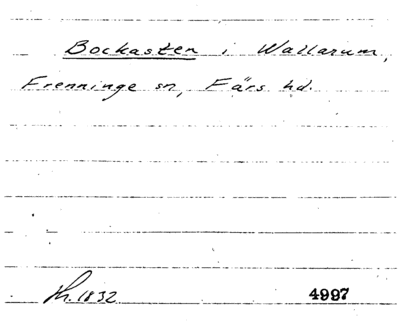 Bockasten i Wallarum,
Frenninge sn, Färs hd.
Th. 1832 4997